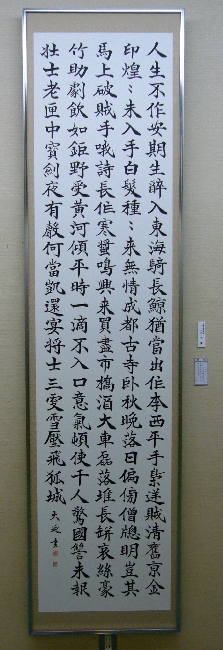 人生不作安期生醉入東海騎長鯨猶當出作李西平手梟逆賊清舊京金
印煌〻未入手白髮種〻來無情成都古寺臥秋晚落日偏傍僧牕明豈其
馬上破賊手哦詩長作寒螿鳴興來買盡市橋酒大車磊落堆長缾哀絲豪
竹助劇飲如鉅野受黃河傾平時一滴不入口意氣頓使千人驚國讐未報
壯士老匣中寶劍夜有聲何當凱還宴將士三更雪壓飛狐城